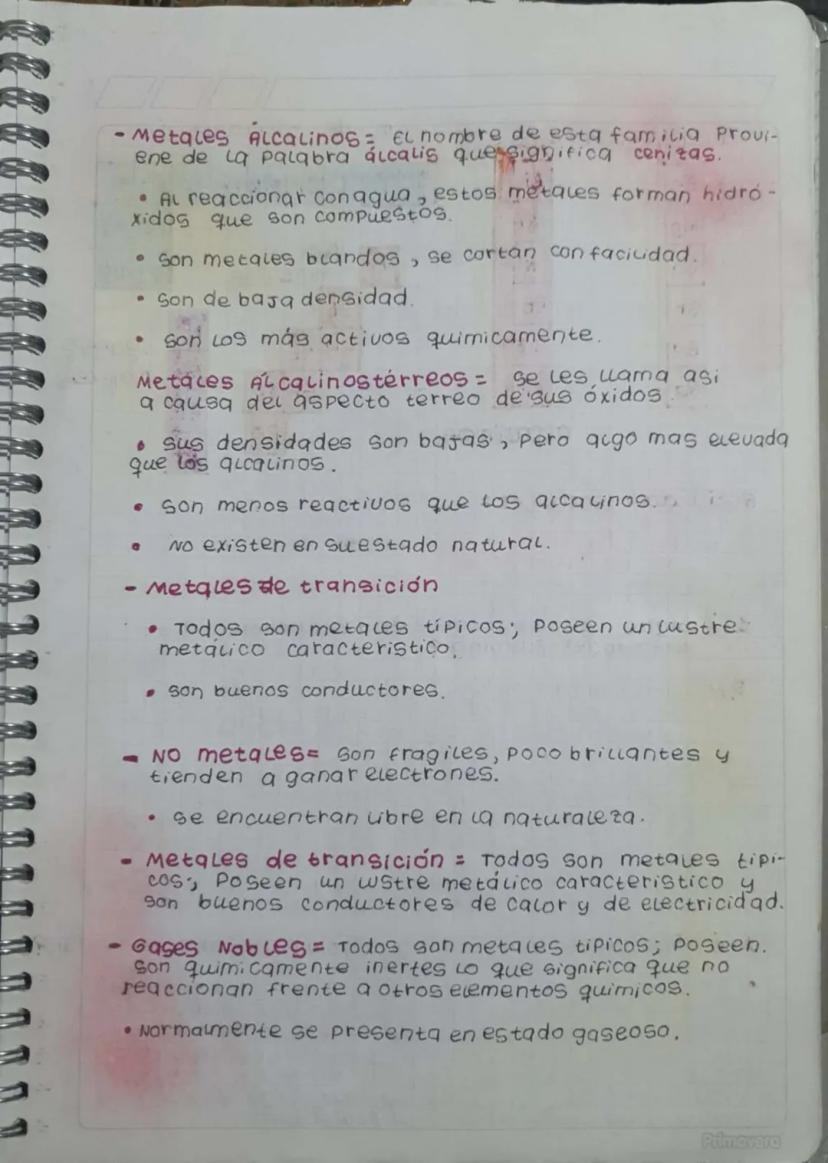 - Metales Álcalinos = El nombre de esta familia Provi-
ene de la palabra álcalis que significa cenizas.
• Al reaccionar con agua, estos metales forman hidró-
xidos que son compuestos.
• Son metales blandos, se cortan con facilidad.
• Son de baja densidad.
• Son los más activos quimicamente.
Metales Álcalinostérreos = se les llama asi
a causa del aspecto terreo de sus óxidos
• Sus densidades son bajas, Pero algo mas elevada
que los alcalinos.
• Son menos reactivos que los alcalinos.
• No existen en su estado natural.
- Metales de transición
• Todos son metales típicos; Poseen un lustre
metálico caracteristico.
• Son buenos conductores.
- No metales = Son fragiles, poco brillantes y
tienden a ganar electrones.
• Se encuentran libre en la naturaleza.
- Metales de transición = Todos son metales tipi-
cos; Poseen un lustre metálico caracteristico y
son buenos conductores de calor y de electricidad.
- Gases Nobles = Todos son metales tipicos; Poseen.
Son quimicamente inertes lo que significa que no
reaccionan frente a otros elementos quimicos.
• Normalmente se presenta en estado gaseoso.
Primavera